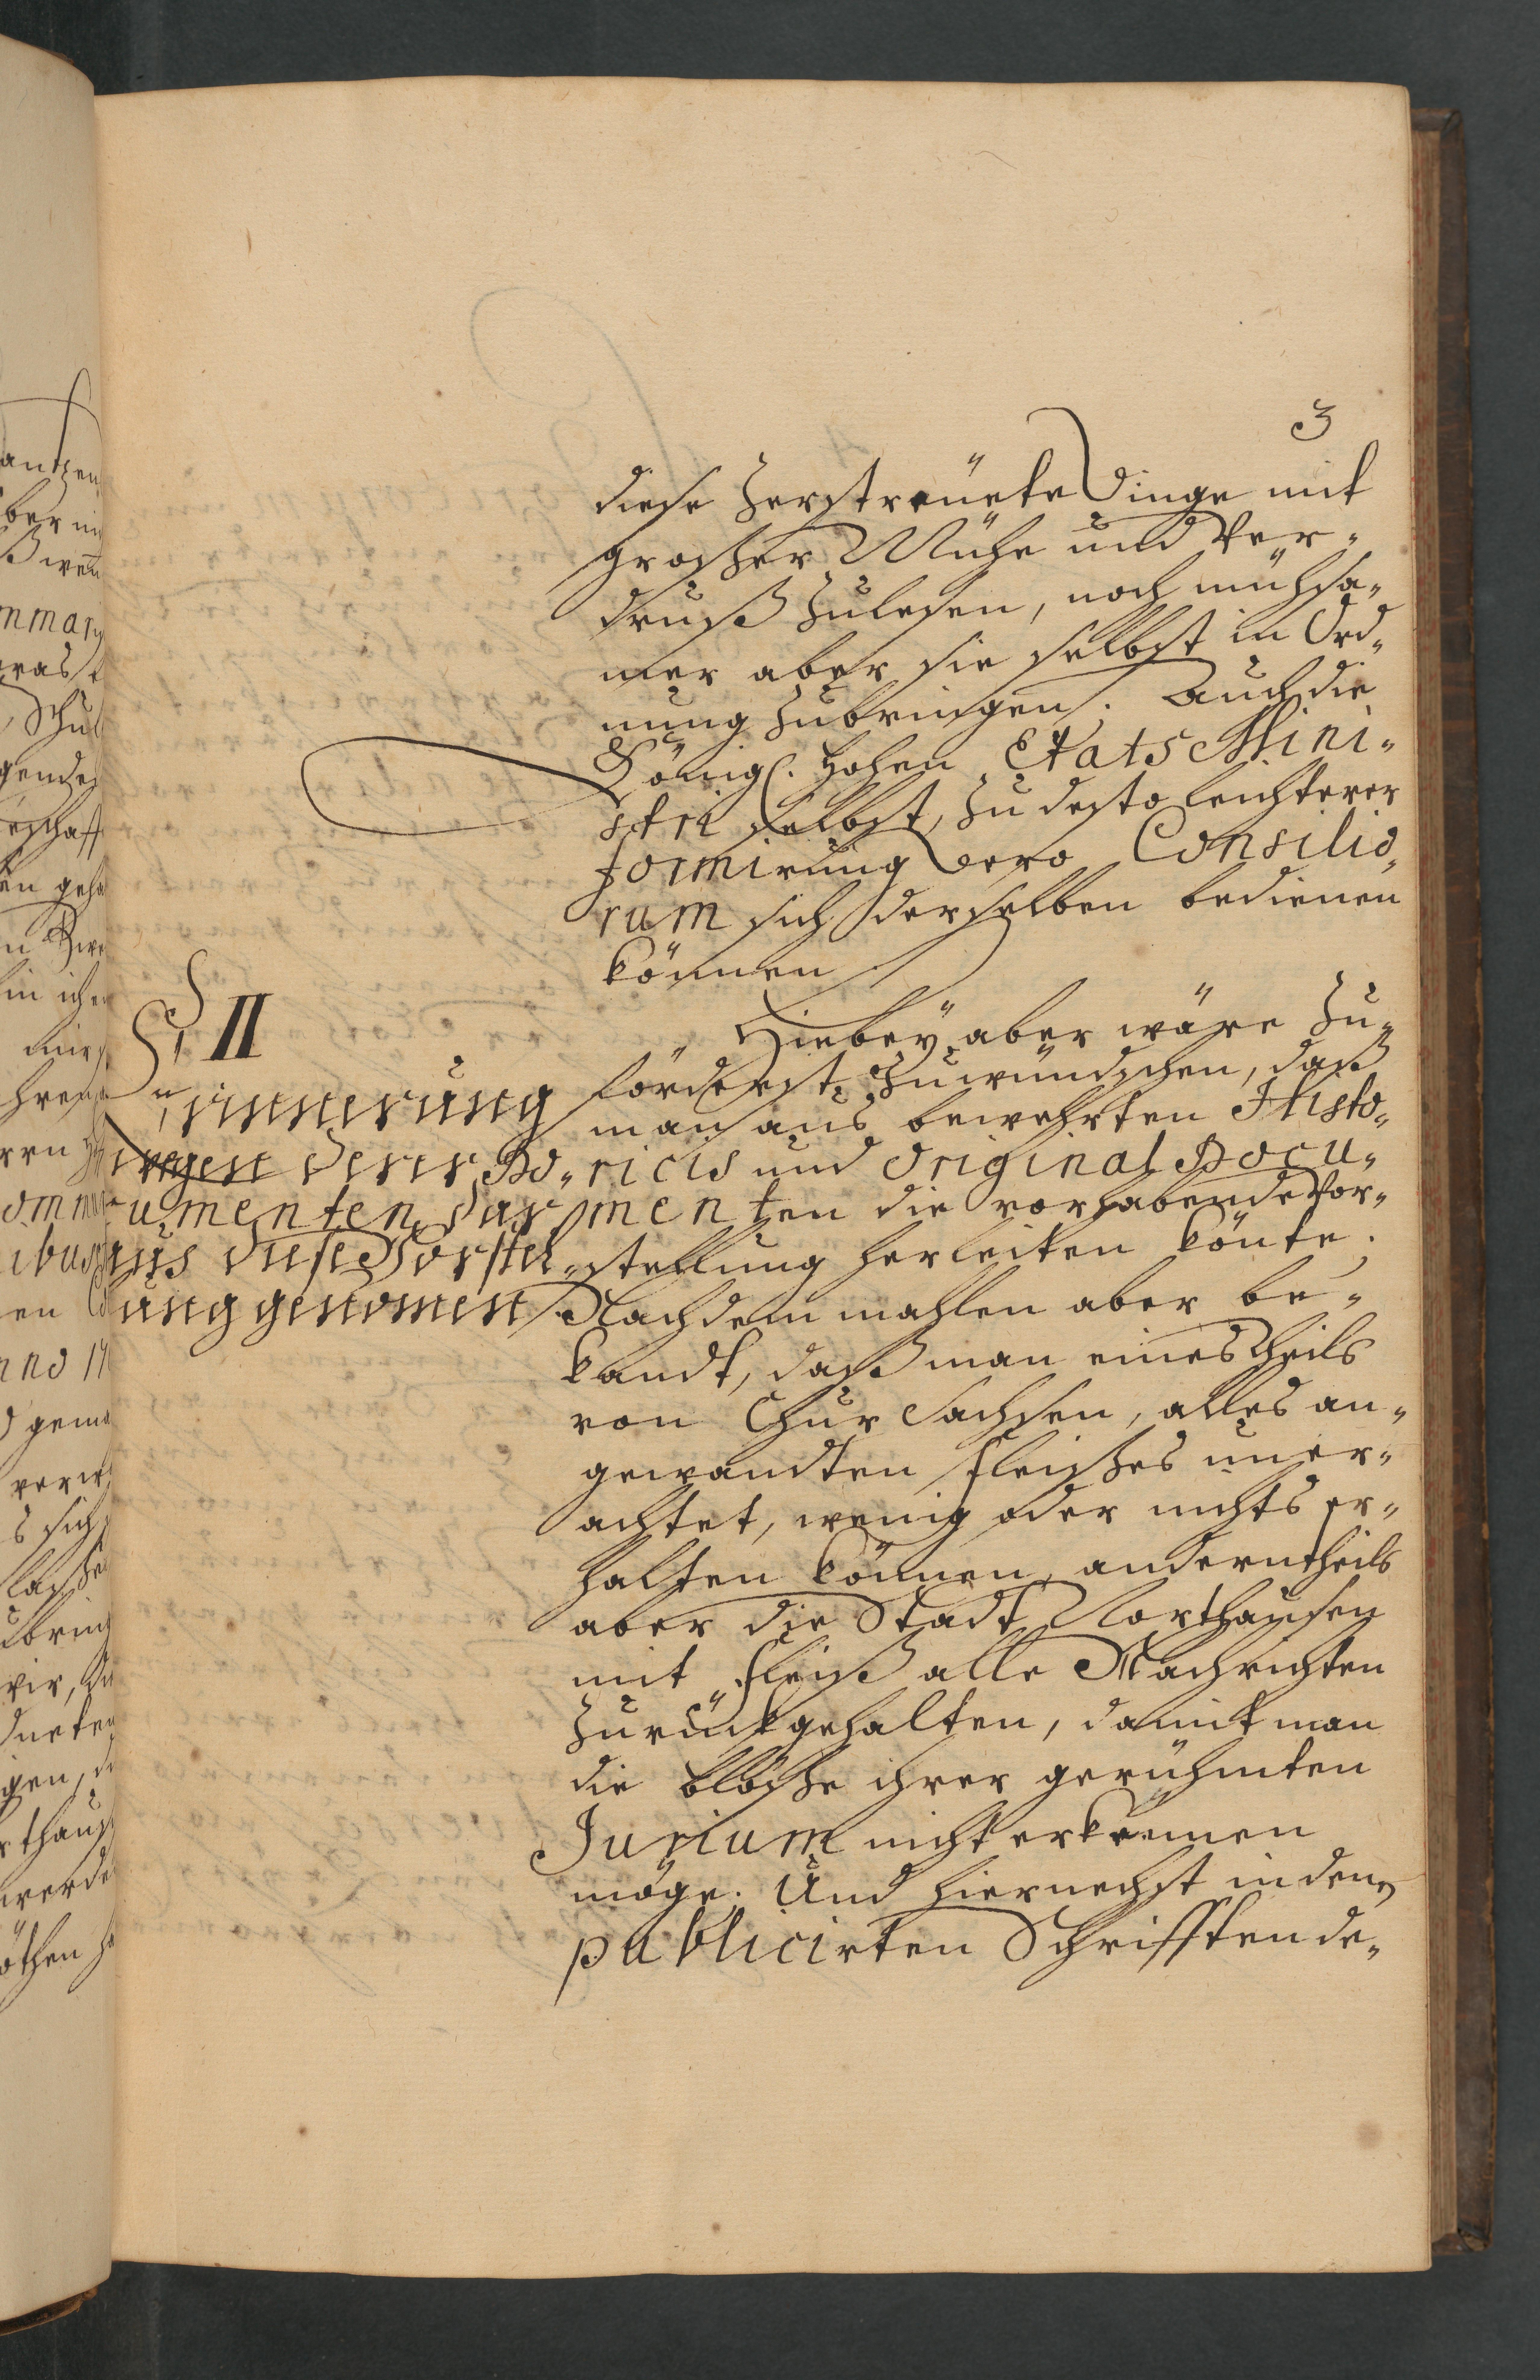 3
diese zerstreüete Dinge mit
grosser Mühe und Ver„
druß zulesen, noch mühsa„
mer aber sie selbst in Ord„
nung zubringen. Auch die
Königl. hohen Etats Mini„
stri selbst, zu desto leichterer
formirung dero Consilio„
rum sich derselben bedienen
können
§ II
Erinnerung
wegen derer Do„
cumenten, dar„
aus diese Vorstel„
lung genomen
Hiebey aber wäre zu„
förderst zuwündschen, daß
man aus bewehrten Histo„
ricis und Original Docu„
menten die vorhabende Vor„
stellung herleiten könte.
Nachdemmahlen aber be„
kandt, daß man eines theils
von Chur Sachsen, alles an„
gewandten fleisses uner„
achtet, wenig oder nichts er„
halten können, anderntheils
aber die Stadt Northausen
mit fleiß alle Nachrichten
zurückgehalten, damit man
die blösse ihrer gerühmten
Jurium nicht erkennen
möge. Und hiernechst in denen
publicirten Schrifften de„